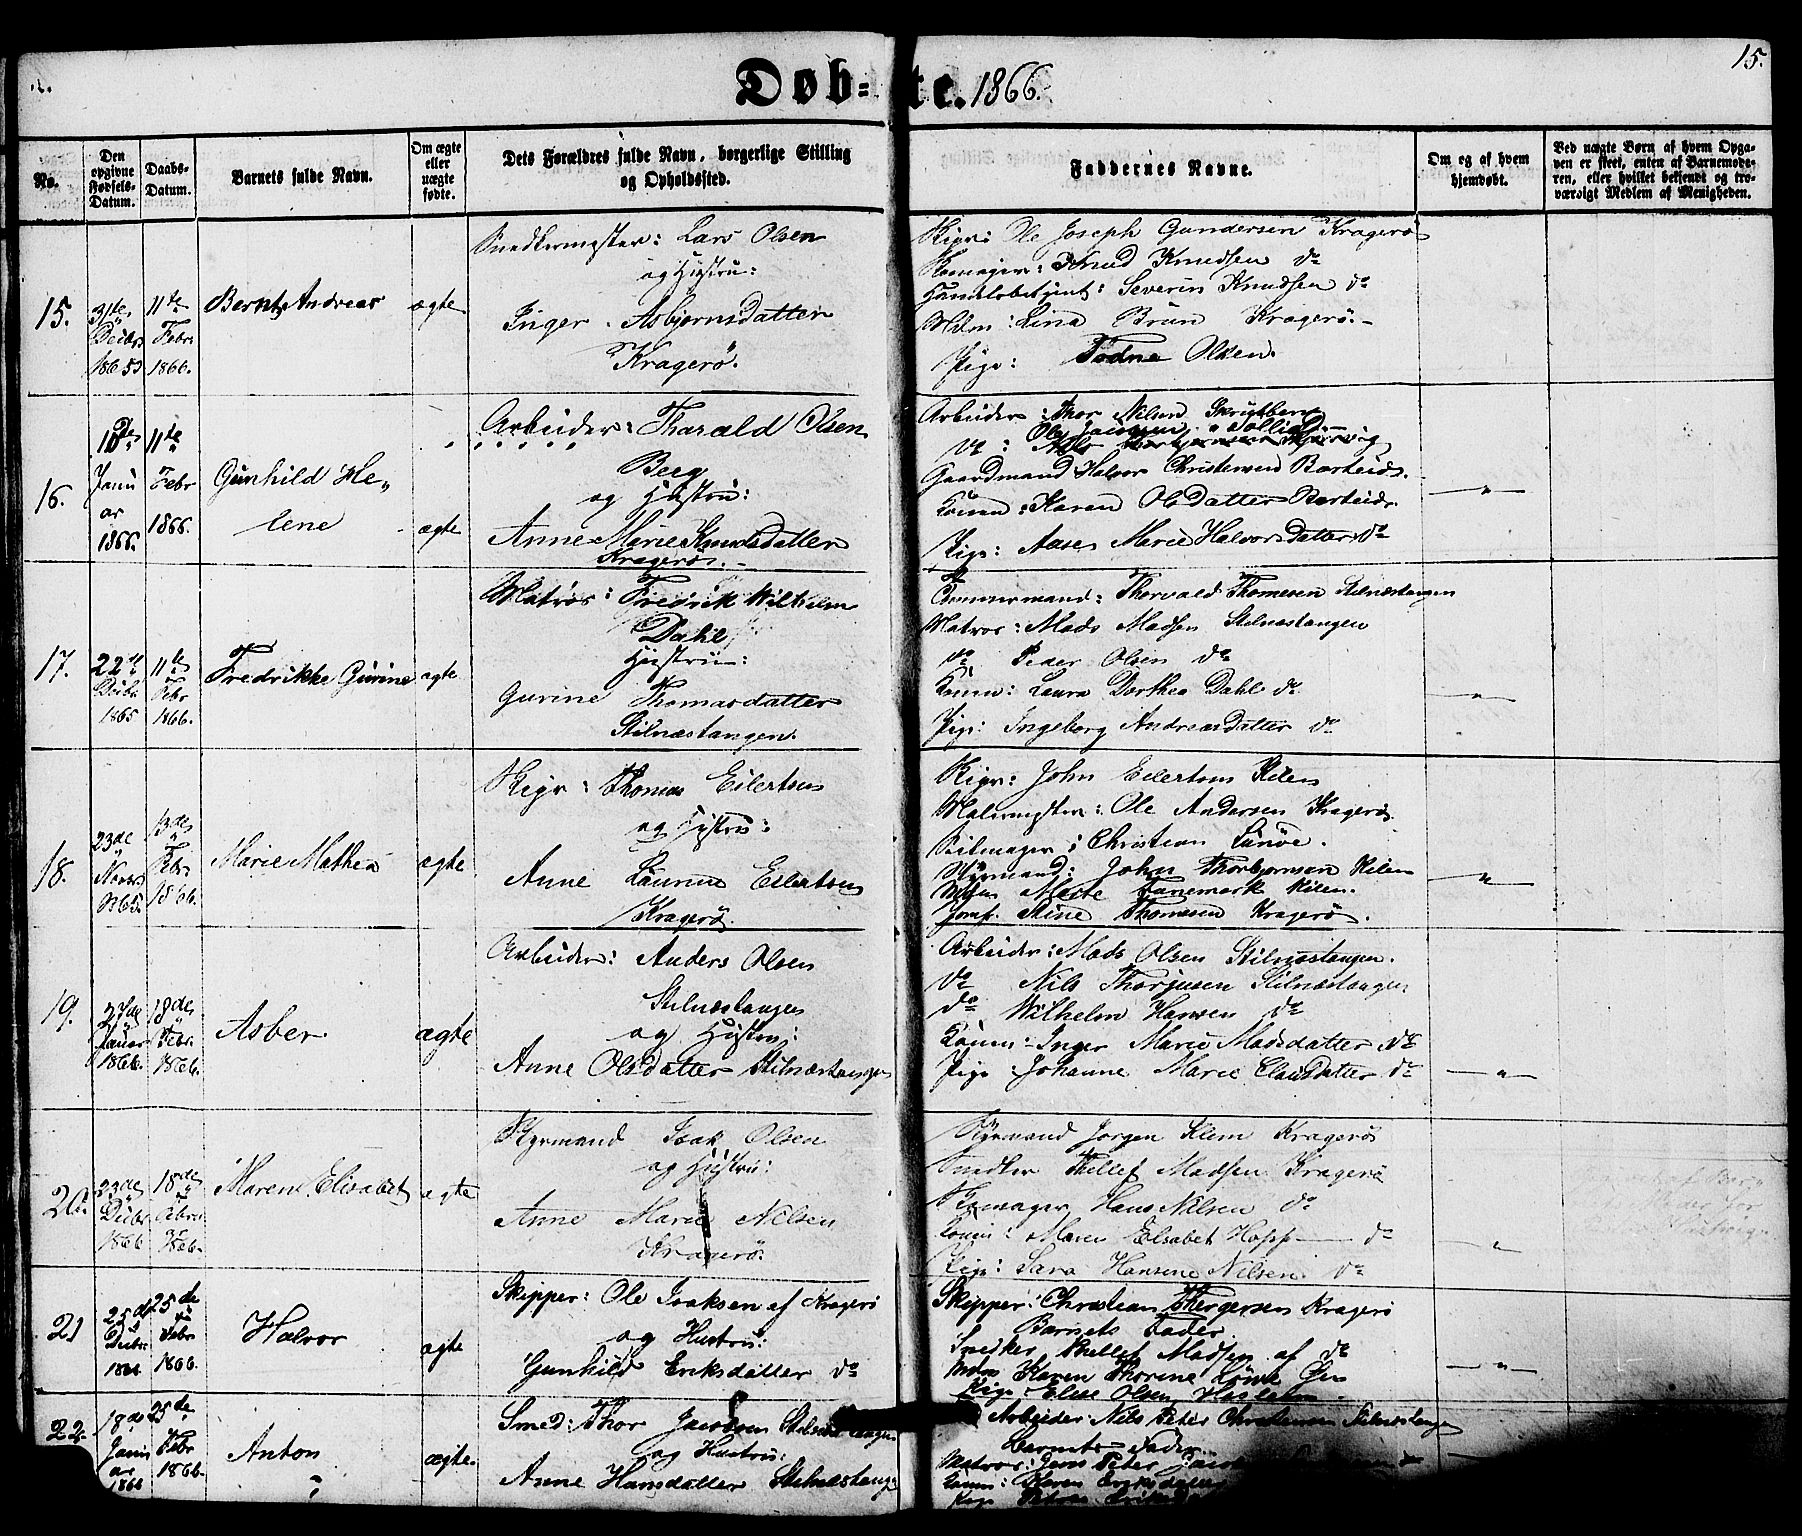 15.
Døb-te. 1866.
No.
Den opgivne Fødsels-Datum.
Daabs-Datum.
Barnets fulde Navn.
Om ægte eller uægte fødte.
Dets Forældres fulde Navn, borgerlige Stilling og Opholdssted.
Faddernes Navne.
Om og af hvem hjemdøbt.
Ved uægte Børn af hvem Opgaven er skeet, enten af Barnemoderen, eller hvilket bekjendt og troværdigt Medlem af Menigheden.
15.
31te Decbr 1865
11te Febr 1866.
Bernt Andreas
ægte
Snedkermester: Lars Olsen
og Hustru:
Inger Asbjørnsdatter
Kragerö.
Ole Joseph Gundersen Kragerö
Skomager: Knud Knudsen do
Handelsbetjent: Severin Knudsen do
Mdm: Lina Brun Kragerö.
Pige: Todne Olsen.
16.
10de Januar 1866.
11te Febr 1866.
Gunhild Helene
ægte
Arbeider: Tharald Olsen
Berg
og Hustru:
Anne Marie Knudsdatter
Kragerö.
Arbeider: Thor Nilsen
do:
Gaardmand Halvor Christensen Barteid.
Konen: Karen Olsdatter Barteid.
Pige: Aase Marie Halvorsdatter do
17.
22de Decbr 1865
11te Febr 1866.
Fredrikke Gurine
ægte
Matros: Fredrik Wilhelm
Dahl
Hustru:
Gurine Thomasdatter
Stilnæstangen.
Tømmermand: Thorvald Thomesen Stilnæstangen
Matros: Mads Madsen Stilnæstangen
do Peder Olsen do
Konen: Laura Dorthea Dahl do
Pige: Ingeborg Andreasdatter do
18.
23de Novbr 1865.
13de Febr 1866.
Marie Mathea
ægte
Thomas Eilertsen
og Hustru:
Anne Laurine Eilertsen
Kragerö.
John Eilertsen Kilen
Malermester: Ole Andersen Kragerö
Seilmager: Christian
Styrmand: John Thorbjørnsen Kilen
Mdm Kilen.
Jomf. Stine Thomesen Kragerö.
19.
27de Januar 1866.
18de Febr. 1866.
Asber
ægte
Arbeider: Anders Olsen
Stilnæstangen
og Hustru:
Anne Olsdatter Stilnæstangen
Arbeider: Mads Olsen Stilnæstangen.
do Nils Thorjusen Stilnæstangen
do Wilhelm Hansen do
Konen: Inger Marie Madsdatter do
Pige: Johanne Marie Clausdatter do
20.
23de Decbr 1866
18de Februar 1866.
Maren Elisabet
ægte
Styrmand Isak Olsen
og Hustru:
Anne Marie Nilsen
Kragerö.
Styrmand Jorgen Klem Kragerö
Snedker Thellef Madsen Kragerö
Hans Nilsen do
Konen: Maren Elsabet Hopp do
Pige: Sara Hansine Nilsen do
21
25de Decbr
25de Febr 1866.
Halvor
ægte
Skipper: Ole Isaksen af Kragerö
og Hustru:
Gunhild Eriksdatter do
Skipper: Christian Kragerö
Barnets Fader.
Snedker Thellef Madsen af do
Mdm Karen Thorine
Pige: Elise Olsen
22.
18de Januar 1866
25de Febr 1866.
Anton
ægte.
Smed: Thor Jacobsen Stilnæstangen
og Hustru:
Anne Hansdatter Stilnæstange
Arbeider: Nils Peter Christensen Stilnæstangen
Barnets Fader.
Matros: Jens Peter
Konen: Karen